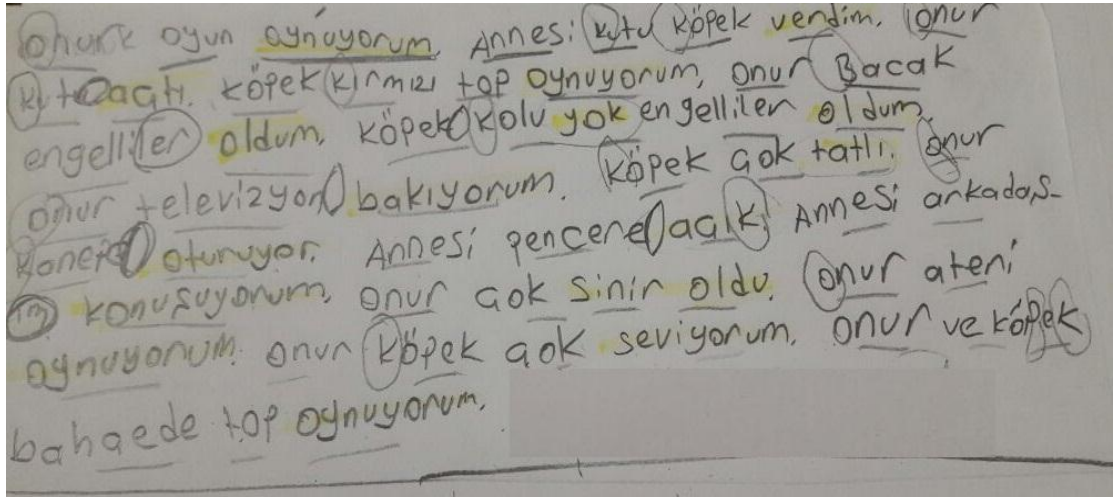 onur oyun oynuyorum. Annesi kutu köpek verdim. onur
kutu açtı. köpek kırmızı top oynuyorum, onur Bacak
engelliler oldum, köpek kolu yok engelliler oldum.
onur televizyon bakıyorum. köpek çok tatlı. onur
oturuyor. Annesi pencere açık. Annesi arkadaş-
ım konuşuyorum, onur çok sinir oldu. onur ateri
oynuyorum. onur köpek çok seviyorum. onur ve köpek
bahçede top oynuyorum.